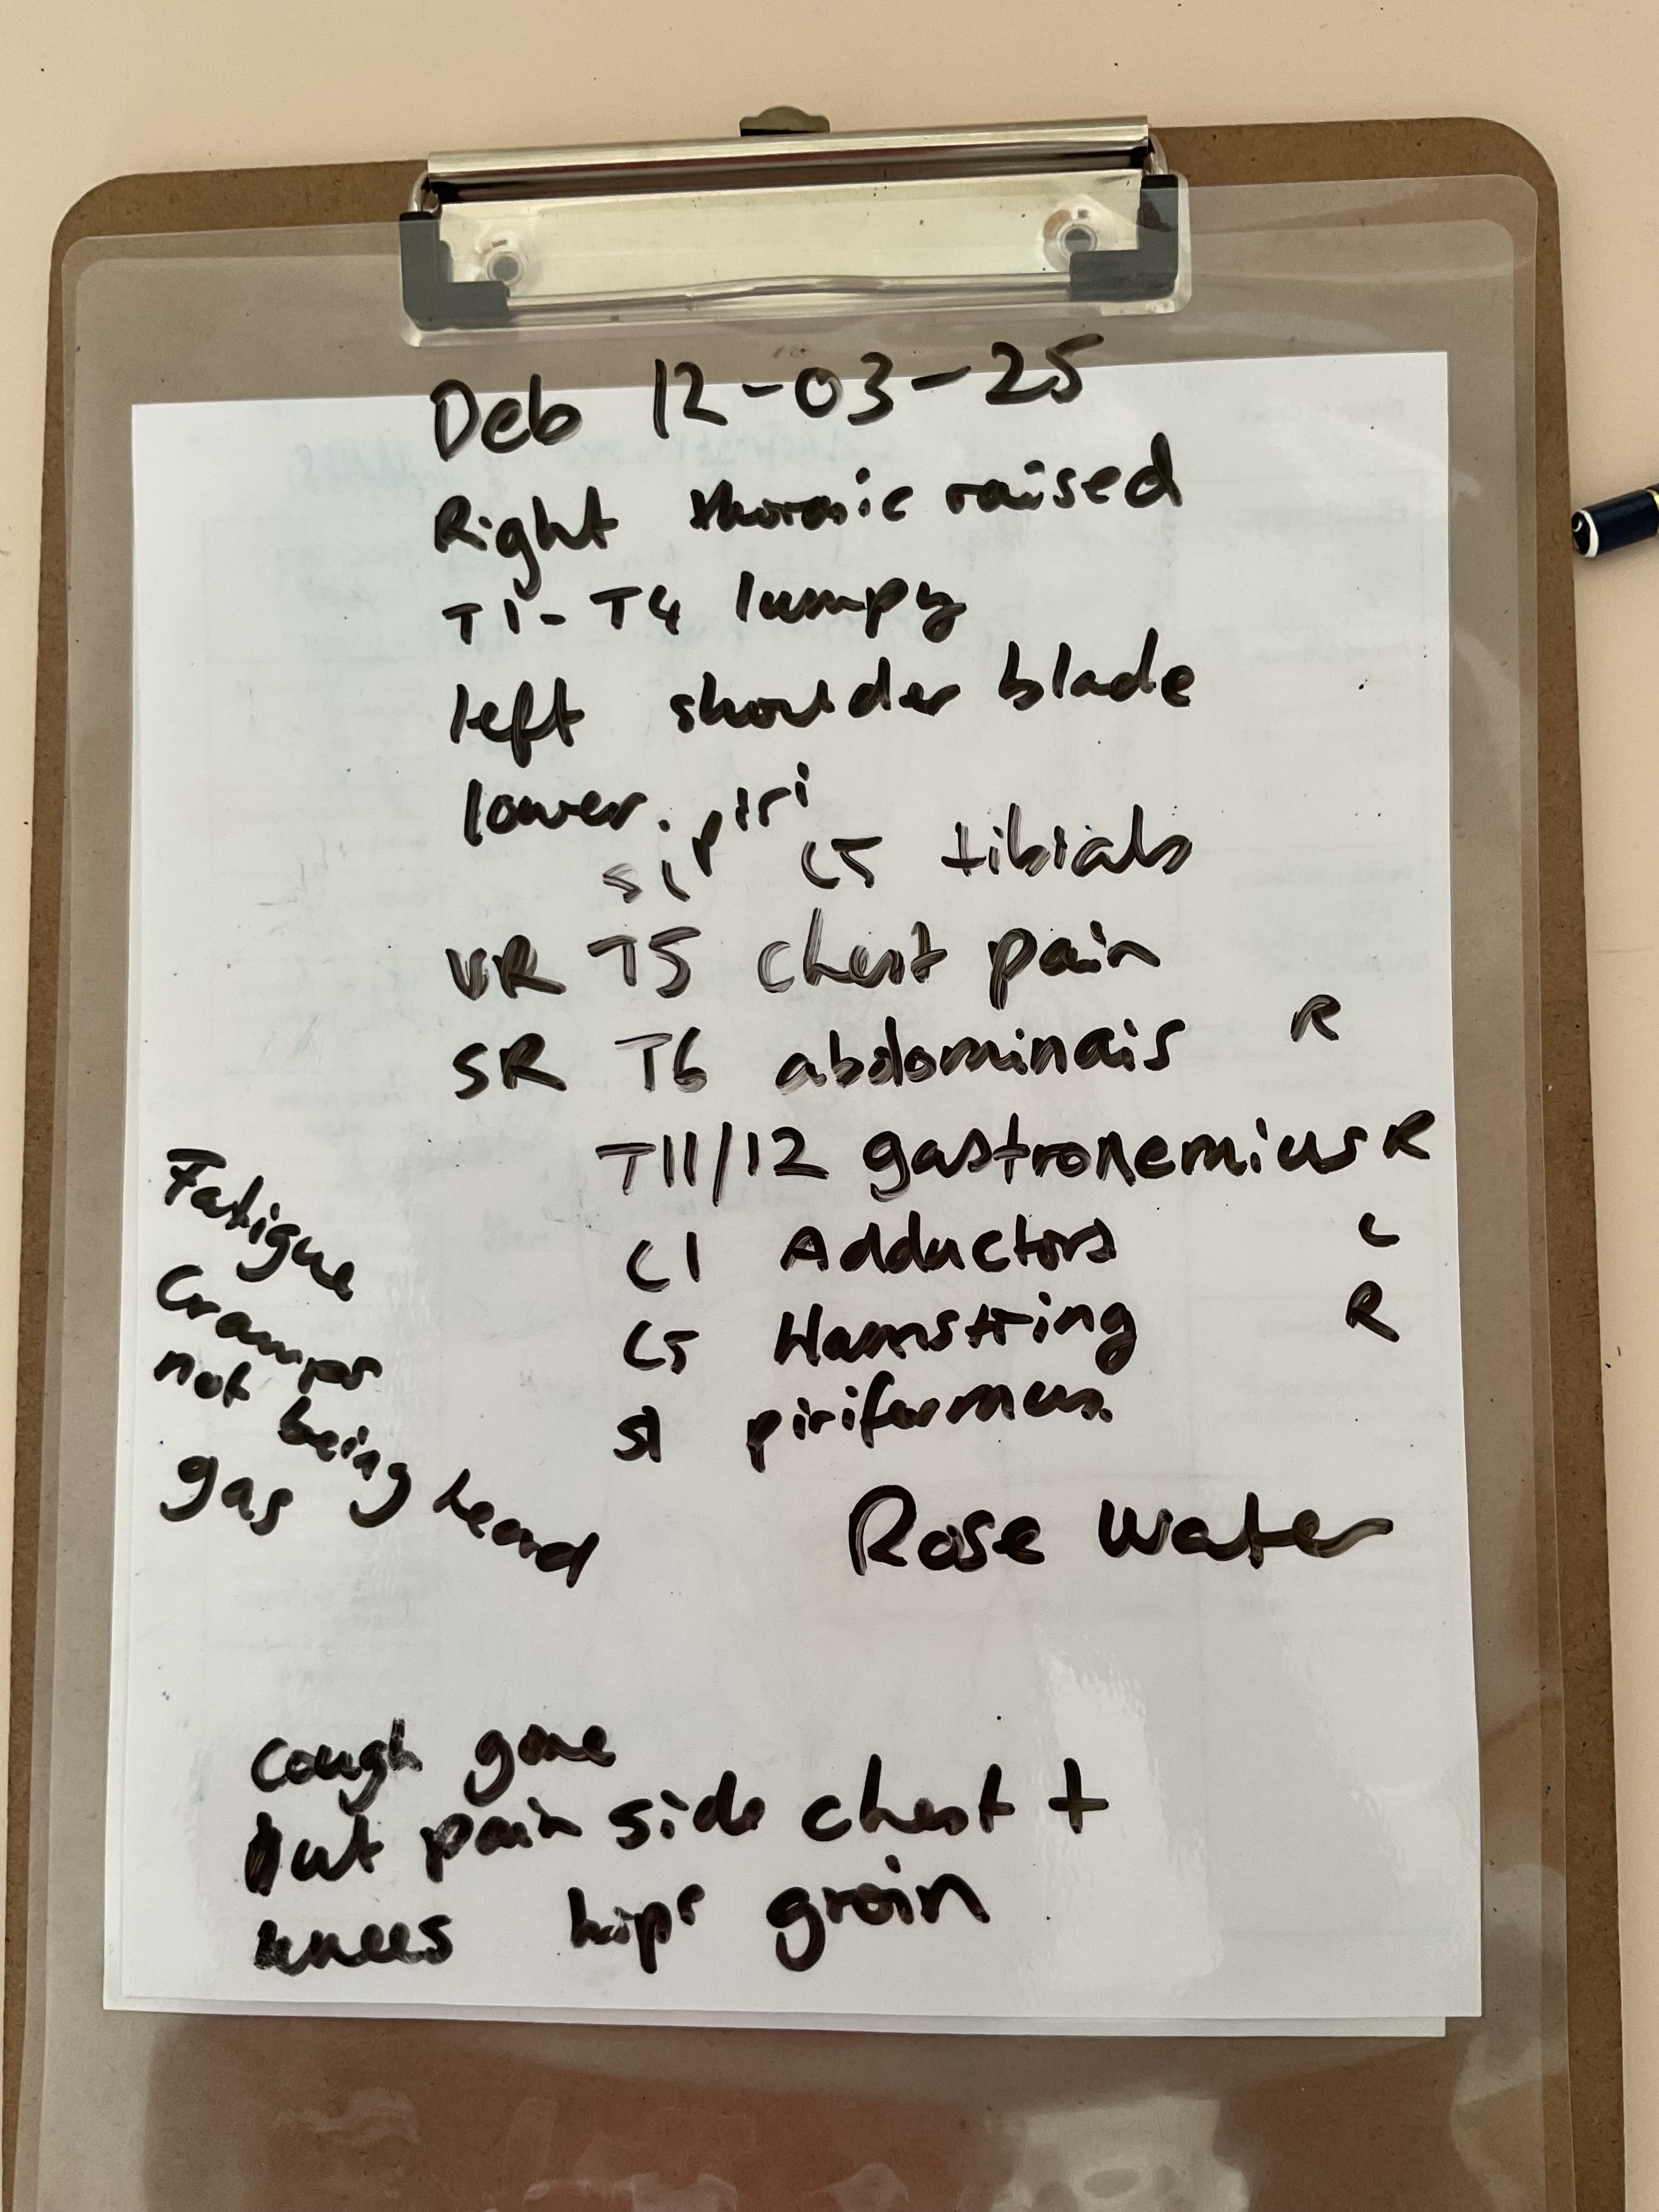 Deb 12-03-25
Right thoracic raised
T1-T4 lumpy
left shoulder blade
lower. piri
S1 L5 tibials
VR T5 chest pain
SR T6 abdominals R
T11/12 gastronemius R
L1 Adductors L
L5 Hamstring R
S1 piriformus.
Fatigue
Cramps
not being heard
gas
Rose Water
cough gone
but pain side chest +
knees hips groin